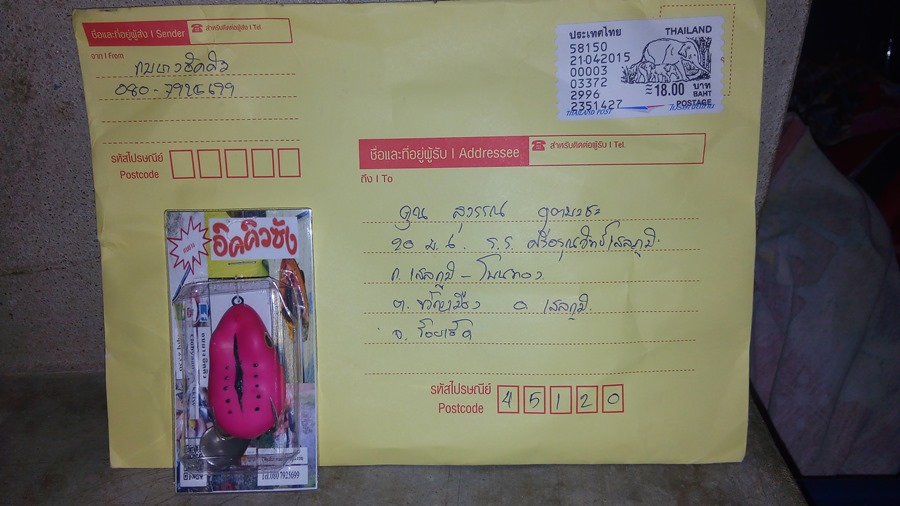 ชื่อและที่อยู่ผู้ส่ง | Sender
☎ สำหรับติดต่อผู้ส่ง | Tel.
จาก | From
080-7925699
รหัสไปรษณีย์
Postcode
ประเทศไทย THAILAND
58150
21-04-2015
00003
03372
2996
2351427
≈18.00 บาท
BAHT
POSTAGE
THAILAND POST
ไปรษณีย์ไทย
ชื่อและที่อยู่ผู้รับ | Addressee
☎ สำหรับติดต่อผู้รับ | Tel.
ถึง | To
คุณ สุวรรณ
ร.ร. เสลภูมิ
ถ. เสลภูมิ - โพนทอง
ต. ขวัญเมือง อ. เสลภูมิ
จ. ร้อยเอ็ด
รหัสไปรษณีย์
Postcode 45120
อิคคิวซัง
Tel.080 7925699